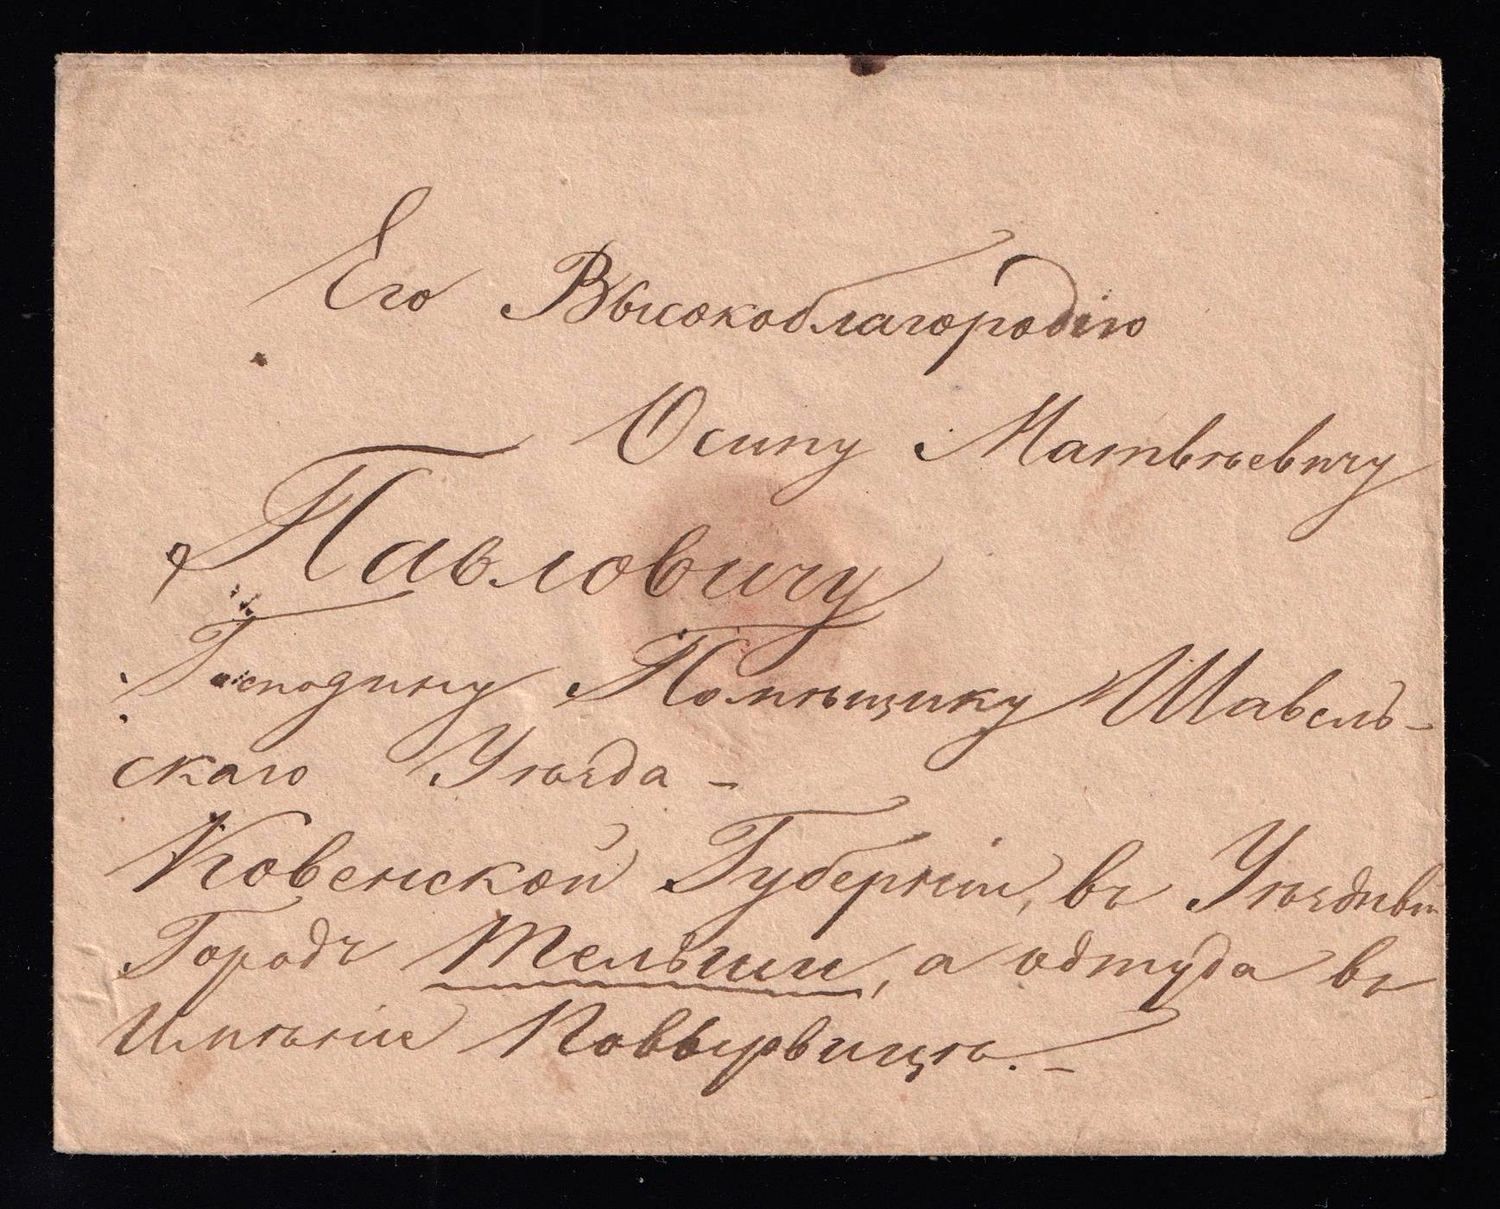 Его Высокоблагородію
Осипу Матвѣевичу
Павловичу
Господину Помѣщику Шавель-
скаго Уѣзда -
Ковенской Губерніи, въ Уѣздный
Городъ Тельши, а одтуда въ
Имѣніе Повьервицѣ. -